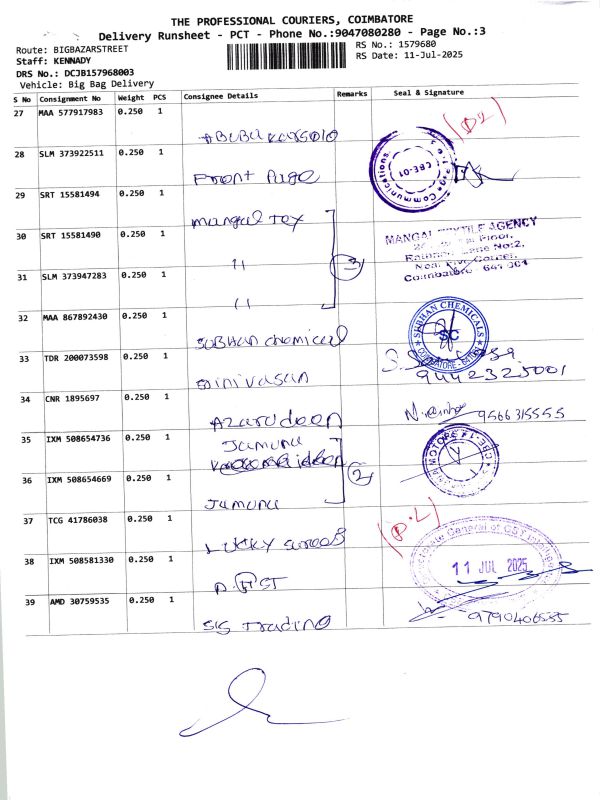 THE PROFESSIONAL COURIERS, COIMBATORE
Delivery Runsheet - PCT - Phone No.:9047080280 - Page No.:3
Route: BIGBAZARSTREET
Staff: KENNADY
DRS No.: DCJB157968003
Vehicle: Big Bag Delivery
RS No.: 1579680
RS Date: 11-Jul-2025
S No Consignment No Weight PCS Consignee Details Remarks Seal & Signature
27 MAA 577917983 0.250 1
28 SLM 373922511 0.250 1
Front Page
Communications
CBE-01
29 SRT 15581494 0.250 1
Mangal Tex
30 SRT 15581490 0.250 1
11
3
MANGAL TEXTILE AGENCY
Coimbatore - 641 001
31 SLM 373947283 0.250 1
11
32 MAA 867892430 0.250 1
SUBHAN chemical
SUBHAN CHEMICALS
SC
COIMBATORE
33 TDR 200073598 0.250 1
Srinivasan
9442325001
34 CNR 1895697 0.250 1
Azarudeen
9566315555
35 IXM 508654736 0.250 1
Jamuna
36 IXM 508654669 0.250 1
Jamuna
2
MOTORS
CBE-1
37 TCG 41786038 0.250 1
LUCKY
38 IXM 508581330 0.250 1
11 JUL 2025
39 AMD 30759535 0.250 1
SIS Trading
9790406555